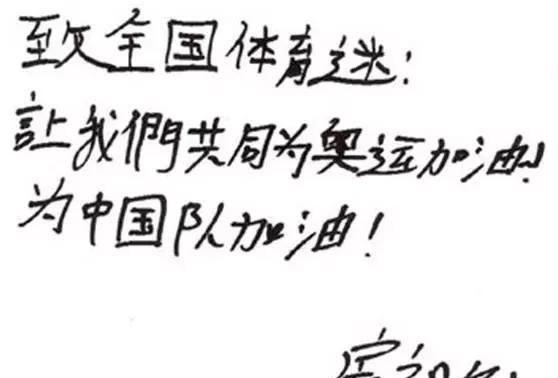 致全国体育迷:
讓我們共同为奥运加油!
为中国队加油!